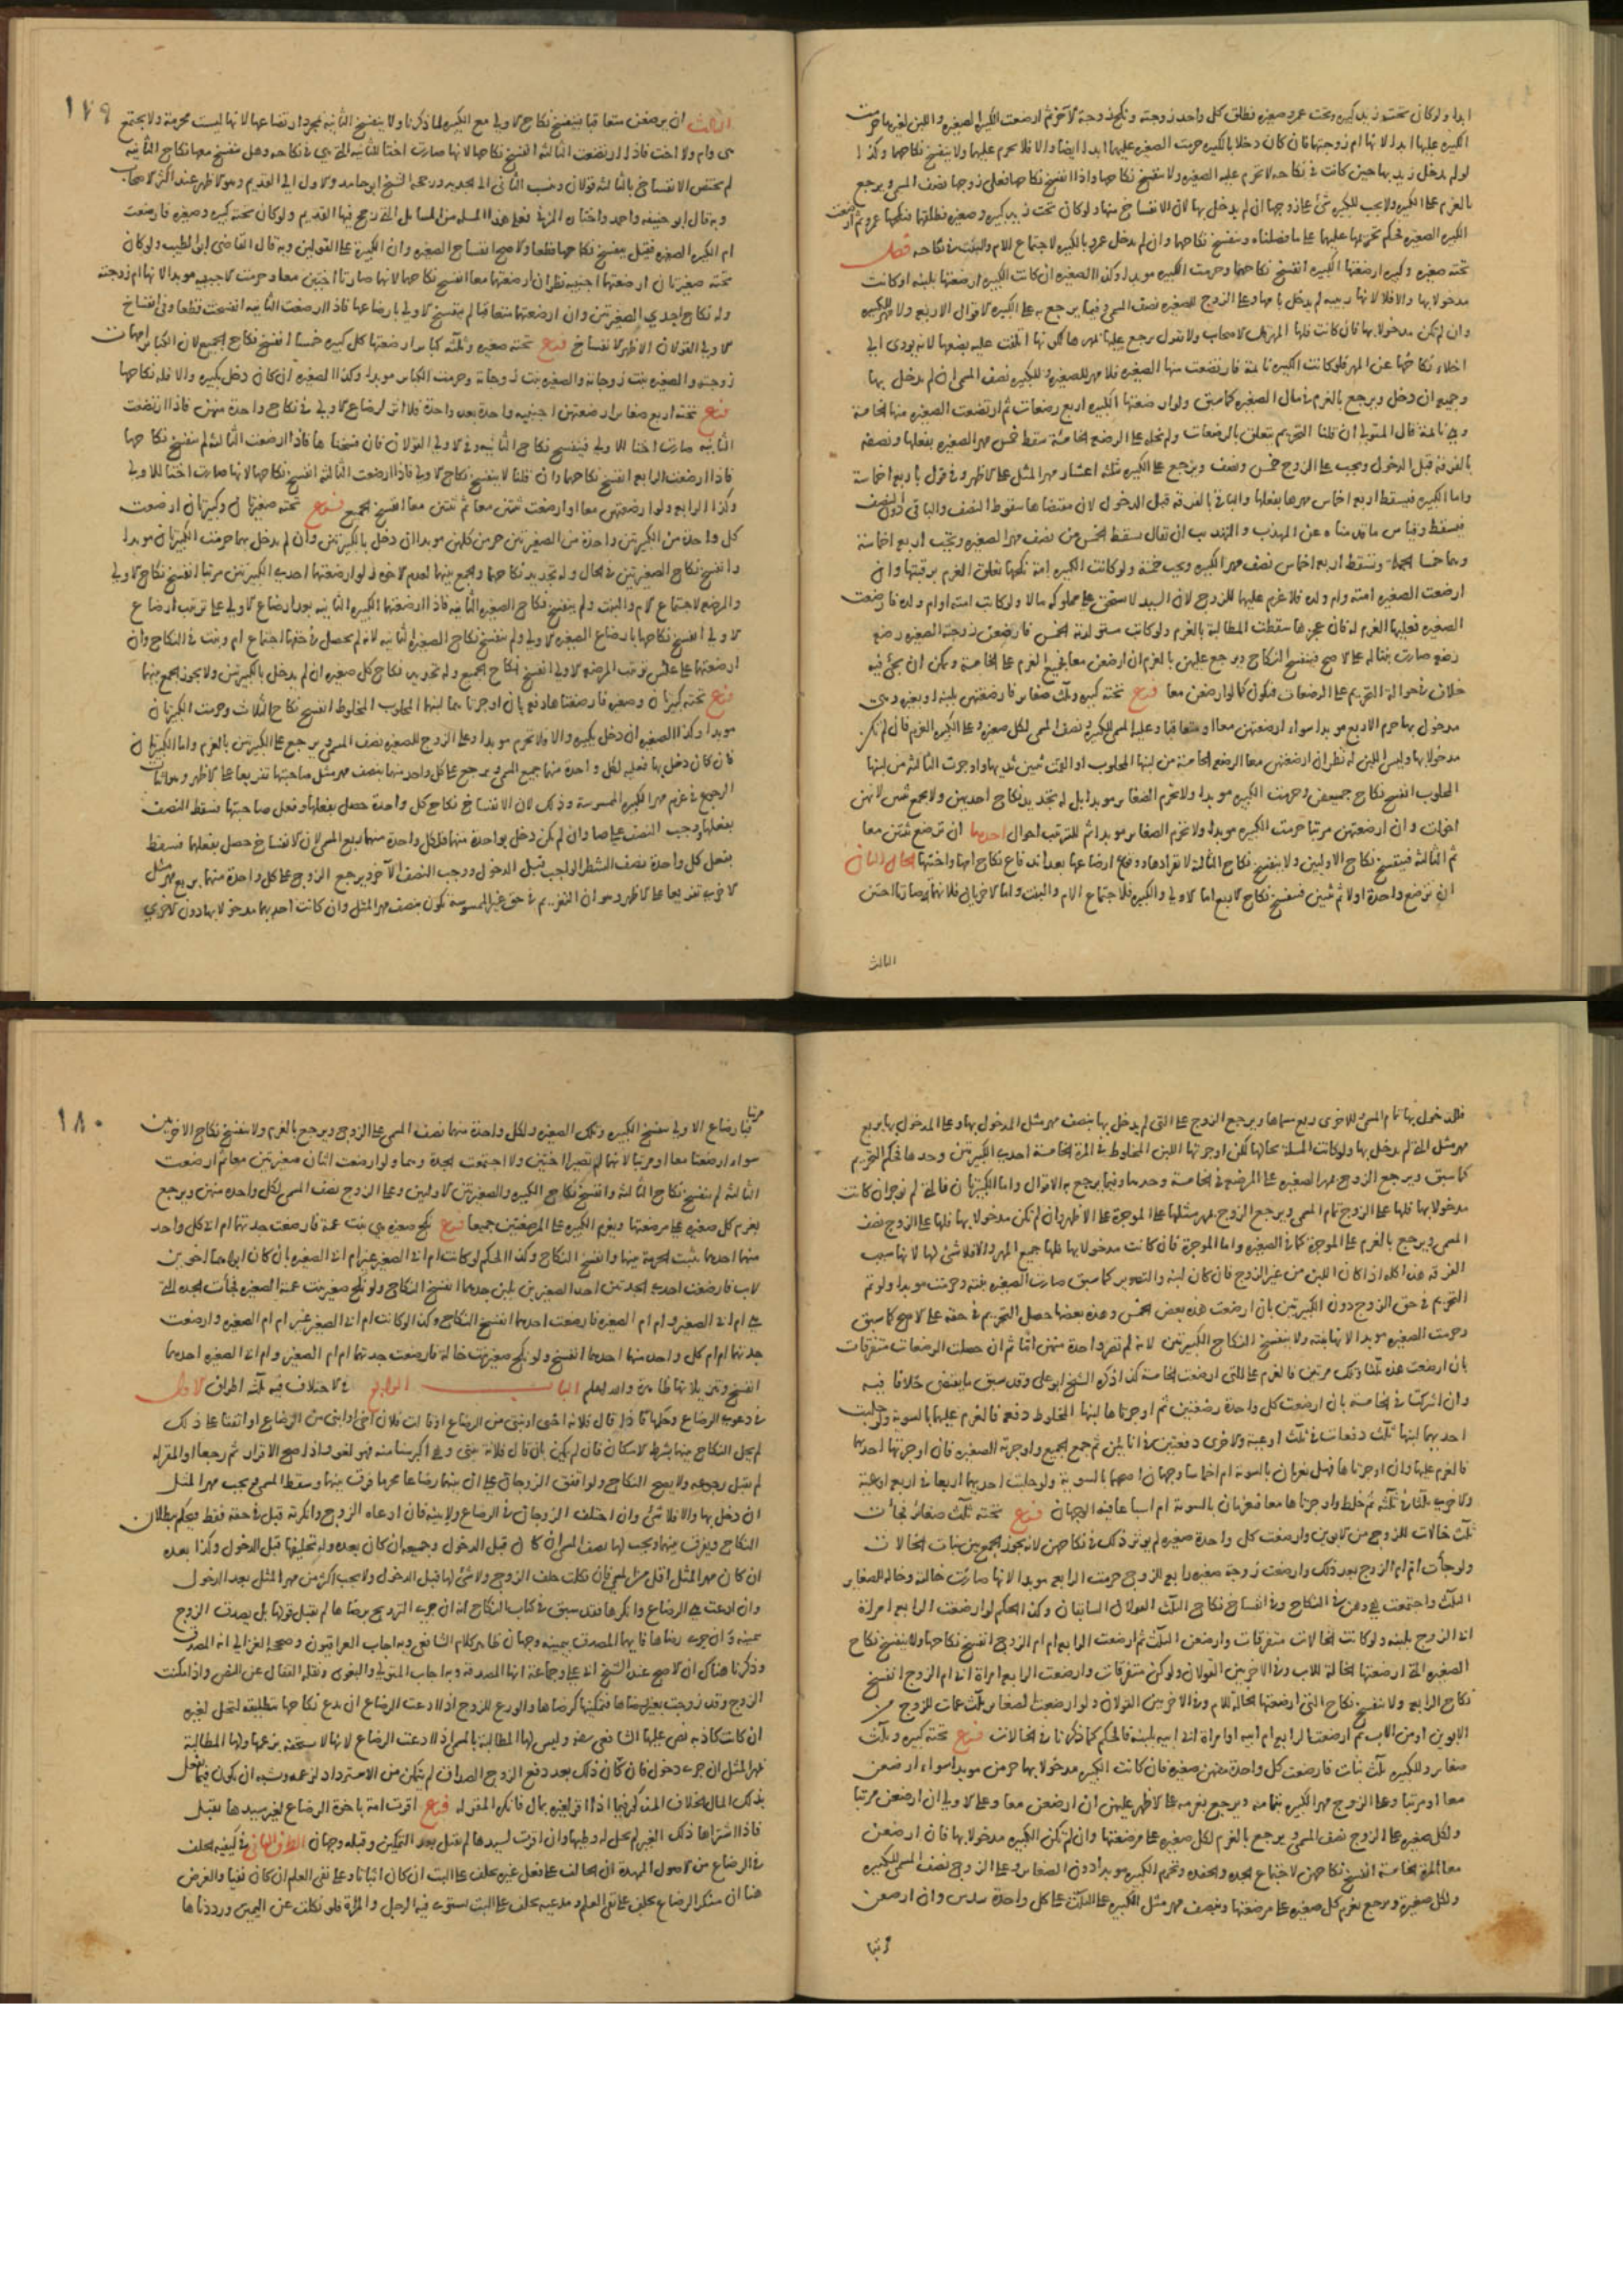 ابدا ولو كان تحت زيد كبيرة وتحت عمرو صغيرة فطلق كل واحد زوجته ونكح زوجة الآخر ثم ارضعت الكبيرة الصغيرة واللبن لغيرهما حرمت
الكبيرة عليهما ابدا لانها ام زوجتهما فان كان دخلا بالكبيرة حرمت الصغيرة عليهما ابدا ايضا والا فلا تحرم عليهما ولا ينفسخ نكاحها وكذا
لو لم يدخل زيد بها حين كانت في نكاحه لا تحرم عليه الصغيرة ولا ينفسخ نكاحها واذا انفسخ نكاحها فعلى زوجها نصف المسمى ويرجع
بالغرم على الكبيرة ولا يجب للكبيرة شئ على زوجها ان لم يدخل بها لان الانفساخ منها ولو كان تحت زيد كبيرة وصغيرة فطلقهما فنكحهما عمرو ثم ارضعت
الكبيرة الصغيرة فحكم تحريمها عليهما على ما فصلناه وينفسخ نكاحهما وان لم يدخل عمرو بالكبيرة لاجتماع الام والبنت في نكاحه فصل
تحته صغيرة وكبيرة ارضعتها الكبيرة انفسخ نكاحهما وحرمت الكبيرة موبدا وكذا الصغيرة ان كانت الكبيرة ارضعتها بلبنه او كانت
مدخولا بها والا فلا لانها ربيبة لم يدخل بامها وعلى الزوج للصغيرة نصف المسمى وفيما يرجع به على الكبيرة الاقوال الاربع ولا مهر للكبيرة
وان لم تكن مدخولا بها فان كانت فلها المهر قال الاصحاب ولا نقول يرجع عليها بمهرها لكونها اتلفت عليه بضعها لانه يودي الى
اخلاء نكاحها عن المهر فلو كانت الكبيرة نائمة فارتضعت منها الصغيرة فلا مهر للصغيرة وللكبيرة نصف المسمى ان لم يدخل بها
وجميعه ان دخل ويرجع بالغرم في مال الصغيرة كما سبق ولو ارضعتها الكبيرة اربع رضعات ثم ارتضعت الصغيرة منها الخامسة
وهي نائمة قال المتولي ان قلنا التحريم يتعلق بالرضعات ولم نحله على الرضعة الخامسة سقط خمس مهر الصغيرة بفعلها ونصفه
بالفرقة قبل الدخول ويجب على الزوج خمس ونصف ويرجع على الكبيرة بثلثة اعشار مهر المثل على الاظهر وفي قول باربعة اخماسه
واما الكبيرة فيسقط اربع اخماس مهرها بفعلها والباقي بالفرقة قبل الدخول لان مقتضاها سقوط النصف والباقي دون النصف
فيسقط وقياس ما قدمناه عن المهذب والتهذيب ان يقال يسقط الخمس من نصف مهر الصغيرة ويجب اربع اخماسه
وهما خمسا الجملة ويسقط اربع اخماس نصف مهر الكبيرة ويجب خمسه ولو كانت الكبيرة امة نكحها تعلق الغرم برقبتها وان
ارضعت الصغيرة امته وام ولده فلا غرم عليها للزوج لان السيد لا يستحق على مملوكه مالا ولو كاتب امته او ام ولده فارضعت
الصغيرة فعليها الغرم له فان عجزها سقطت المطالبة بالغرم ولو كانت مستولداته الخمس فارضعن زوجته الصغيرة رضعة
رضعة صارت بنتا له على الاصح فينفسخ النكاح ويرجع عليهن بالغرم ان ارضعن معا فيجئ الغرم على الخامسة ويمكن ان يجئ فيه
خلاف في حوالة التحريم على الرضعات فيكون كما لو ارضعن معا فرع تحته كبيرة وثلث صغاير فارضعتهن بلبنه او بغيره وهي
مدخول بها حرم الاربع موبدا سواء ارضعتهن معا او متعاقبا وعليه المسمى للكبيرة ونصف المسمى لكل صغيرة وعلى الكبيرة الغرم فان لم تكن
مدخولا بها وليس اللبن له نظر ان ارضعتهن معا الرضعة الخامسة من لبنها المحلوب او القمت ثنتين ثدييها واوجرت الثالثة من لبنها
المحلوب انفسخ نكاح جميعهن وحرمت الكبيرة موبدا ولا تحرم الصغاير موبدا بل له تجديد نكاح احديهن ولا يجمع ثنتين لانهن
اخوات وان ارضعتهن مرتبا حرمت الكبيرة موبدا ولا تحرم الصغاير موبدا ثم للترتيب احوال احدها ان ترضع ثنتين معا
ثم الثالثة فينفسخ نكاح الاوليين ولا ينفسخ نكاح الثالثة لانفرادها ووقوع ارضاعها بعد اندفاع نكاح امها واختيها الحال الثاني
ان ترضع واحدة اولا ثم ثنتين فينفسخ نكاح الاربع اما الاولى والكبيرة فلاجتماع الام والبنت واما الاخريان فلانهما صارتا اختين
الثالث
١٧٩
الثالث ان يرضعن متعاقبا فينفسخ نكاح الاولى مع الكبيرة لما ذكرنا ولا ينفسخ الثانية بمجرد ارتضاعها لانها ليست محرمة ولا يجتمع
هي وام ولا اخت فاذا ارتضعت الثالثة انفسخ نكاحها لانها صارت اختا للثانية التي هي في نكاحه وهل ينفسخ معها نكاح الثانية
ام يختص الانفساخ بالثالثة قولان وينسب الثاني الى الجديد ورجحه الشيخ ابو حامد والاول الى القديم وهو الاظهر عند اكثر الاصحاب
وبه قال ابو حنيفة واحمد واختاره المزني فعلى هذا المسلة من المسائل التي ترجح فيها القديم ولو كان تحته كبيرة وصغيرة فارضعت
ام الكبيرة الصغيرة فقيل ينفسخ نكاحهما قطعا والاصح انفساخ الصغيرة وان الكبيرة على القولين وبه قال القاضي ابو الطيب ولو كان
تحته صغيرتان ارضعتهما اجنبية نظر ان ارضعتهما معا انفسخ نكاحهما لانهما صارتا اختين معا وحرمت الاجنبية موبدا لانها ام زوجته
وله نكاح احدي الصغيرتين وان ارضعتهما متعاقبا لم ينفسخ الاولى بارضاعها فاذا ارضعت الثانية انفسخت قطعا وفي انفساخ
الاولى القولان الاظهر الانفساخ فرع تحته صغيرة وثلثة كبار ارضعتها كل كبيرة خمسا انفسخ نكاح الجميع لان الكبار امهات
زوجته والصغيرة بنت زوجاته والصغيرة بنت زوجاته وحرمت الكبار موبدا وكذا الصغيرة ان كان دخل بكبيرة والا فله نكاحها
فرع تحته اربع صغاير ارضعتهن اجنبية واحدة بعد واحدة فلا اثر لرضاع الاولى في نكاح واحدة منهن فاذا ارتضعت
الثانية صارت اختا للاولى فينفسخ نكاح الثانية وفي الاولى القولان فان فسخناها فاذا ارضعت الثالثة لم ينفسخ نكاحها
فاذا ارضعت الرابعة انفسخ نكاحهما وان قلنا لا ينفسخ نكاح الاولى فاذا ارضعت الثالثة انفسخ نكاحها لانها صارت اختا للاولى
وكذا الرابعة ولو ارضعتهن معا او ارضعت ثنتين معا ثم ثنتين معا انفسخ الجميع فرع تحته صغيرتان وكبيرتان ارضعت
كل واحدة من الكبيرتين واحدة من الصغيرتين حرمن كلهن موبدا ان دخل بالكبيرتين وان لم يدخل بهما حرمت الكبيرتان موبدا
وانفسخ نكاح الصغيرتين في الحال وله تجديد نكاحهما والجمع بينهما لعدم الاخوة ولو ارضعتهما احدى الكبيرتين مرتبا انفسخ نكاح الاولى
والمرضعة لاجتماع الام والبنت ولم ينفسخ نكاح الصغيرة الثانية فاذا ارضعتهما الكبيرة الثانية بعد ارضاع الاولى على ترتيب ارضاع
الاولى انفسخ نكاحها بارضاع الصغيرة الاولى ولم ينفسخ نكاح الصغيرة الثانية لانه لم يحصل في حقها اجتماع ام وبنت في النكاح وان
ارضعتهما على عكس ترتيب المرضعة الاولى انفسخ نكاح الجميع وله تجديد نكاح كل صغيرة ان لم يدخل بالكبيرتين ولا يجوز الجمع بينهما
فرع تحته كبيرتان وصغيرة فارضعتاها دفعة بان اوجرتاها لبنهما المحلوب المخلوط انفسخ نكاح الثلاث وحرمت الكبيرتان
موبدا وكذا الصغيرة ان دخل بكبيرة والا فلا تحرم موبدا وعلى الزوج للصغيرة نصف المسمى ويرجع على الكبيرتين بالغرم واما الكبيرتان
فان كان دخل بهما فعليه لكل واحدة منهما جميع المسمى ويرجع على كل واحدة منهما بنصف مهر مثل صاحبتها تفريعا على الاظهر وهو اثبات
الرجوع في غرم مهر الكبيرة الممسوسة وذلك لان الانفساخ نكاح كل واحدة حصل بفعلها وفعل صاحبتها فسقط النصف
بفعلها ووجب النصف على صاحبتها وان لم يكن دخل بواحدة منهما فلكل واحدة منهما ربع المسمى لان الانفساخ حصل بفعلهما فسقط
بفعل كل واحدة نصف الشطر الواجب قبل الدخول ووجب النصف الآخر ويرجع الزوج على كل واحدة منهما بربع مهر مثل
الاخرى تفريعا على الاظهر وهو ان التغريم في حق غير الممسوسة تكون بنصف مهر المثل وان كانت احديهما مدخولا بها دون الاخرى
فللمدخول بها تمام المسمى وللاخرى ربع مسماها ويرجع الزوج على التي لم يدخل بها بنصف مهر مثل المدخول بها وعلى المدخول بها بربع
مهر مثل التي لم يدخل بها ولو كانت المسلة بحالها لكن اوجرتها اللبن المخلوط في المرة الخامسة احدى الكبيرتين وحدها فحكم التحريم
كما سبق ويرجع الزوج بمهر الصغيرة على المرضعة في الخامسة وحدها وفيما يرجع به الاقوال واما الكبيرتان فالتي لم توجر ان كانت
مدخولا بها فلها على الزوج تمام المسمى ويرجع الزوج بمهر مثلها على الموجرة على الاظهر وان لم تكن مدخولا بها فلها على الزوج نصف
المسمى ويرجع بالغرم على الموجرة كما في الصغيرة واما الموجرة فان كانت مدخولا بها فلها جميع المهر والا فلا شئ لها لانها سبب
الفرقة هذا كله اذا كان اللبن من غير الزوج فان كان لبنه والتصوير كما سبق صارت الصغيرة بنته وحرمت موبدا ولو تم
التحريم في حق الزوج دون الكبيرتين بان ارضعت هذه بعض الخمس وهذه بعضها حصل التحريم في حقه على الاصح كما سبق
وحرمت الصغيرة موبدا لانها بنته ولا ينفسخ النكاح الكبيرتين لانه لم تصر واحدة منهن اما ثم ان حصلت الرضعات متفرقات
بان ارضعت هذه ثلثا وتلك مرتين فالغرم على التي ارضعت الخامسة كذا ذكره الشيخ ابو على وقد سبق ما يقتضي خلافا فيه
وان اشتركتا في الخامسة بان ارضعت كل واحدة رضعتين ثم اوجرتاها لبنهما المخلوط دفعة فالغرم عليهما بالسوية ولو حلبت
احديهما لبنها ثلث دفعات في ثلث اوعية والاخرى دفعتين في انائين ثم جمع الجميع واوجرته الصغيرة فان اوجرتها احديهما
فالغرم عليها وان اوجرتاها فهل يغرمان بالسوية ام اخماسا وجهان اصحهما بالسوية ولو حلبت احديهما اربعا في اربع اوعية
والاخرى ثلثا في ثلثة ثم خلط واوجرتاها معا فيغرمان بالسوية ام اسباعا فيه الوجهان فرع تحته ثلث صغاير فجاءت
ثلث خالات للزوج من الابوين وارضعت كل واحدة صغيرة لم يوثر ذلك في نكاحهن لانه يجوز الجمع بين بنات الخالات
ولو جأت ام ام الزوج بعد ذلك وارضعت زوجة صغيرة رابعة للزوج حرمت الرابعة موبدا لانها صارت خالته وخالة الصغاير
الثلث واجتمعت هي وهن في النكاح وفي انفساخ نكاح الثلث القولان السابقان وكذا الحكم لو ارضعت الرابعة امراة
اب ام الزوج بلبنه ولو كانت الخالات متفرقات وارضعن الثلث ثم ارضعت الرابعة ام ام الزوج انفسخ نكاحها ولا ينفسخ نكاح
الصغيرة التي ارضعتها الخالة للاب وفي الاخريين القولان ولو كن متفرقات وارضعت الرابعة امراة اب ام الزوج انفسخ
نكاح الرابعة ولا ينفسخ نكاح التي ارضعتها الخالة للام وفي الاخريين القولان ولو ارضعت الصغاير ثلث عمات للزوج من
الابوين او من الاب ثم ارضعت الرابعة ام ابيه او امراة اب ابيه بلبنه فالحكم كما ذكرنا في الخالات فرع تحته كبيرة وثلث
صغاير وللكبيرة ثلث بنات فارضعت كل واحدة منهن صغيرة فان كانت الكبيرة مدخولا بها حرمن موبدا سواء ارضعن
معا او مرتبا وعلى الزوج مهر الكبيرة بتمامه ويرجع بغرمه على الاظهر عليهن ان ارضعن معا وعلى الاولى ان ارضعن مرتبا
ولكل صغيرة على الزوج نصف المسمى ويرجع بالغرم لكل صغيرة على مرضعتها وان لم تكن الكبيرة مدخولا بها فان ارضعن
معا المرة الخامسة انفسخ نكاحهن لاجتماع الجدة والحفدة وتحرم الكبيرة موبدا دون الصغاير وعلى الزوج نصف المسمى للكبيرة
ولكل صغيرة ويرجع بغرم كل صغيرة على مرضعتها وبنصف مهر مثل الكبيرة على الثلث على كل واحدة سدس وان ارضعن
مرتبا
١٨٠
مرتبا فبارضاع الاولى ينفسخ الكبيرة وتلك الصغيرة ولكل واحدة منهما نصف المسمى على الزوج ويرجع بالغرم ولا ينفسخ نكاح الاخريين
سواء ارضعتا معا او مرتبا لانهما لم تصيرا اختين ولا اجتمعت الجدة وهما ولو ارضعت اثنتان صغيرتين معا ثم ارضعت
الثالثة لم ينفسخ نكاح الثالثة وانفسخ نكاح الكبيرة والصغيرتين الاوليين وعلى الزوج نصف المسمى لكل واحدة منهن ويرجع
بغرم كل صغيرة على مرضعتها وبغرم الكبيرة على المرضعتين جميعا فرع نكح صغيرة هي بنت عمه فارضعت جدتهما ام اب كل واحد
منهما احدهما ثبتت الحرمة بينهما وانفسخ النكاح وكذا الحكم لو كانت ام اب الصغير غير ام اب الصغيرة بان كان ابوهما اخوين
لاب فارضعت احدى الجدتين احد الصغيرين بلبن جدهما انفسخ النكاح ولو نكح صغير بنت عمة الصغيرة فجأت الجدة التي
هي ام اب الصغير وام ام الصغيرة فارضعت احدهما انفسخ النكاح وكذا لو كانت ام اب الصغير غير ام ام الصغيرة وارضعت
جدتهما ام ام كل واحد منهما احدهما انفسخ ولو نكح صغير بنت خالة فارضعت جدتهما ام ام الصغير وام اب الصغيرة احدهما
انفسخ وتنزيلاتها ظاهرة والله اعلم الباب الرابع في الاختلاف فيه ثلثة اطراف الاول
في دعوى الرضاع وحكمها فاذا قال فلانة اختي او بنتي من الرضاع او قالت فلان اخي او ابني من الرضاع او اتفقا على ذلك
لم يحل النكاح بينهما بشرط الامكان فان لم يكن بان قال فلانة بنتي وهي اكبر سنا منه فهو لغو واذا صح الاقرار ثم رجعا او المقر له
لم يقبل رجوعه ولا يصح النكاح ولو اتفق الزوجان على ان بينهما رضاعا محرما فرق بينهما وسقط المسمى ويجب مهر المثل
ان دخل بها والا فلا شئ وان اختلف الزوجان في الرضاع ولا بينة فان ادعاه الزوج وانكرته قبل في حقه فقط فيحكم ببطلان
النكاح ويفرق بينهما ويجب لها نصف المسمى ان كان قبل الدخول وجميعه ان كان بعده وله تحليفها قبل الدخول وكذا بعده
ان كان مهر المثل اقل من المسمى فان نكلت حلف الزوج ولا شئ لها قبل الدخول ولا يجب اكثر من مهر المثل بعد الدخول
وان ادعت هي الرضاع وانكرها فقد سبق في كتاب النكاح انه ان جرى التزويج برضاها لم يقبل قولها بل يصدق الزوج
بيمينه وان جرى بغير رضاها فايهما المصدق بيمينه وجهان ظاهر كلام الشافعي وبه اجاب العراقيون وصححه الغزالي انه المصدق
وذكرنا هناك ان الاصح عند الشيخ ابي علي وجماعة انها المصدقة وبه اجاب المتولي والبغوي ونقله القفال عن النص واذا مكنت
الزوج وقد زوجت بغير رضاها فتمكينها كرضاها والورع للزوج اذا ادعت الرضاع ان يدع نكاحها بتطليقة لتحل لغيره
ان كانت كاذبة نص عليها الشافعي رضه وليس لها المطالبة بالمسمى اذا ادعت الرضاع لانها لا يستحقه بزعمها ولها المطالبة
بمهر المثل ان جرى دخول فان كان ذلك بعد دفع الزوج الصداق لم يتمكن من الاسترداد لزعمه ويشبه ان يكون فيما يفعل
بذلك المال الخلاف المذكور فيما اذا اقر لغيره بمال فانكر المقر له فرع اقرت امة باخوة الرضاع لغير سيدها يقبل
فاذا اشتراها ذلك الغير لم يحل له وطيها وان اقرت لسيدها لم يقبل بعد التمكين وقبله وجهان الطرف الثاني في كيفية الحلف
في الرضاع من الاصول الممهدة ان الحالف على فعل غيره يحلف على البت ان كان اثباتا وعلى نفى العلم ان كان نفيا والغرض
هنا ان منكر الرضاع يحلف على نفى العلم ومدعيه يحلف على البت يستوى فيه الرجل والمراة فلو نكلت عن اليمين ورددناها